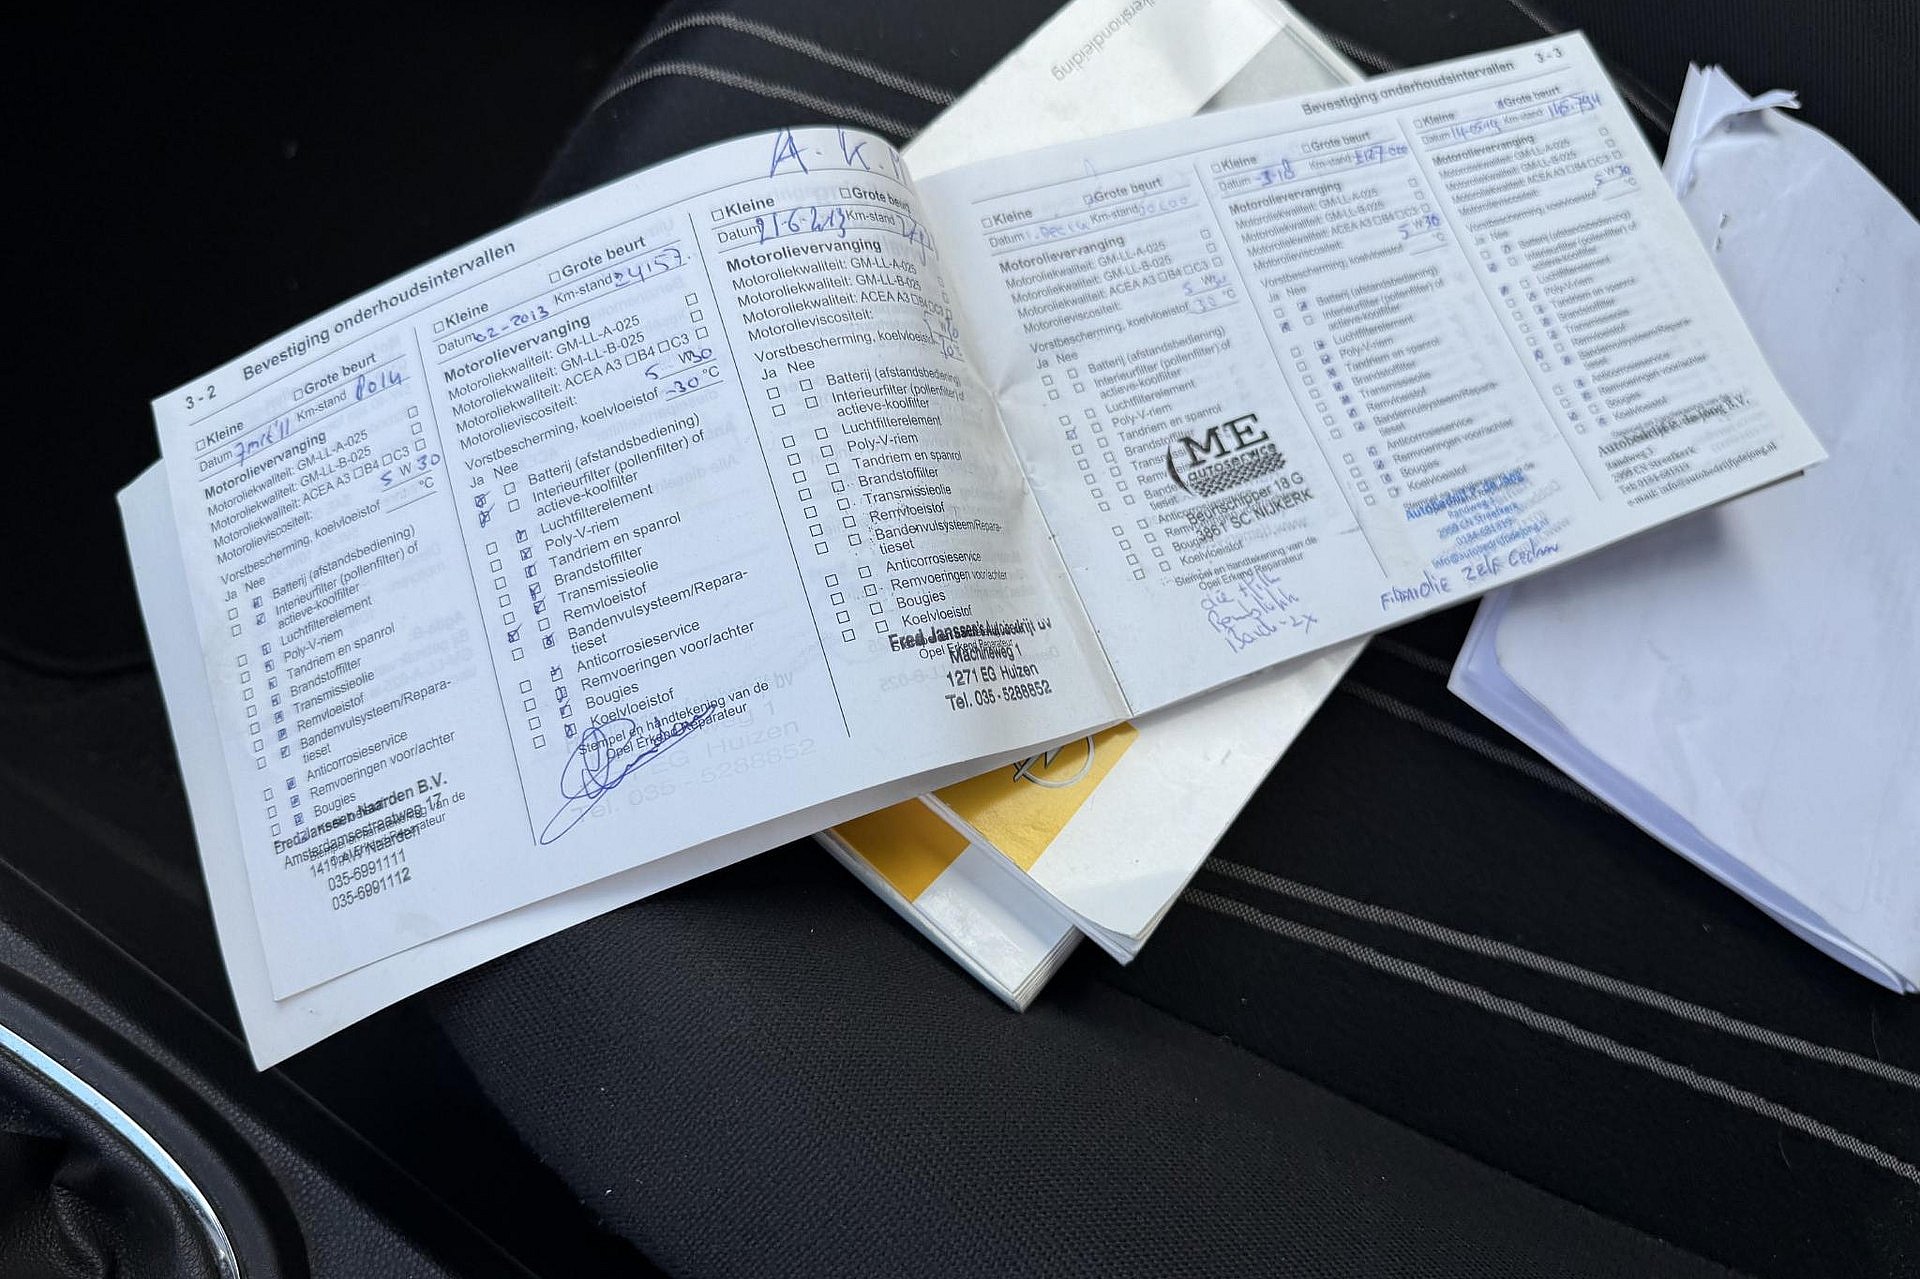 3 - 2 Bevestiging onderhoudsintervallen
□Kleine □Grote beurt
Datum Km-stand
Motorolievervanging
Motoroliekwaliteit: GM-LL-A-025
Motoroliekwaliteit: GM-LL-B-025
Motoroliekwaliteit: ACEA A3 □B4 □C3
Motorolieviscositeit: 5 W 30
Vorstbescherming, koelvloeistof °C
Ja Nee
Batterij (afstandsbediening)
Interieurfilter (pollenfilter) of
actieve-koolfilter
Luchtfilterelement
Poly-V-riem
Tandriem en spanrol
Brandstoffilter
Transmissieolie
Remvloeistof
Bandenvulsysteem/Repara-
tieset
Anticorrosieservice
Remvoeringen voor/achter
Bougies
Fred Janssen Naarden B.V.
Amsterdamsestraatweg 17
1411 AW Naarden
035-6991111
035-6991112
□Kleine □Grote beurt
Datum 02-2013 Km-stand 24157.
Motorolievervanging
Motoroliekwaliteit: GM-LL-A-025
Motoroliekwaliteit: GM-LL-B-025
Motoroliekwaliteit: ACEA A3 □B4 □C3
Motorolieviscositeit: 5 W30
Vorstbescherming, koelvloeistof -30 °C
Ja Nee
Batterij (afstandsbediening)
Interieurfilter (pollenfilter) of
actieve-koolfilter
Luchtfilterelement
Poly-V-riem
Tandriem en spanrol
Brandstoffilter
Transmissieolie
Remvloeistof
Bandenvulsysteem/Repara-
tieset
Anticorrosieservice
Remvoeringen voor/achter
Bougies
Koelvloeistof
Stempel en handtekening van de
Opel Erkend Reparateur
A. K.
□Kleine □Grote beurt
Datum 21-6-2013 Km-stand
Motorolievervanging
Motoroliekwaliteit: GM-LL-A-025
Motoroliekwaliteit: GM-LL-B-025
Motoroliekwaliteit: ACEA A3 □B4 □C3
Motorolieviscositeit:
Vorstbescherming, koelvloeistof
Ja Nee
Batterij (afstandsbediening)
Interieurfilter (pollenfilter) of
actieve-koolfilter
Luchtfilterelement
Poly-V-riem
Tandriem en spanrol
Brandstoffilter
Transmissieolie
Remvloeistof
Bandenvulsysteem/Repara-
tieset
Anticorrosieservice
Remvoeringen voor/achter
Bougies
Koelvloeistof
Fred Janssen's Autobedrijf BV
Opel Erkend Reparateur
Machineweg 1
1271 EG Huizen
Tel. 035 - 5288852
Bevestiging onderhoudsintervallen 3 - 3
□Kleine □Grote beurt
Datum Km-stand
Motorolievervanging
Motoroliekwaliteit: GM-LL-A-025
Motoroliekwaliteit: GM-LL-B-025
Motoroliekwaliteit: ACEA A3 □B4 □C3
Motorolieviscositeit: 5 W30
Vorstbescherming, koelvloeistof -30 °C
Ja Nee
Batterij (afstandsbediening)
Interieurfilter (pollenfilter) of
actieve-koolfilter
Luchtfilterelement
Poly-V-riem
Tandriem en spanrol
ME
autoservice
Beurtschipper 18 G
3861 SC NIJKERK
Koelvloeistof
Stempel en handtekening van de
Opel Erkend Reparateur
□Kleine □Grote beurt
Datum 3-18 Km-stand
Motorolievervanging
Motoroliekwaliteit: GM-LL-A-025
Motoroliekwaliteit: GM-LL-B-025
Motoroliekwaliteit: ACEA A3 □B4 □C3
Motorolieviscositeit: 5 W 30
Vorstbescherming, koelvloeistof °C
Ja Nee
Batterij (afstandsbediening)
Interieurfilter (pollenfilter) of
actieve-koolfilter
Luchtfilterelement
Poly-V-riem
Tandriem en spanrol
Brandstoffilter
Transmissieolie
Remvloeistof
Bandenvulsysteem/Repara-
tieset
Anticorrosieservice
Remvoeringen voor/achter
Bougies
Koelvloeistof
Autobedrijf de Jong
Randweg 3
□Kleine Grote beurt
Datum Km-stand
Motorolievervanging
Motoroliekwaliteit: GM-LL-A-025
Motoroliekwaliteit: GM-LL-B-025
Motoroliekwaliteit: ACEA A3 □B4 □C3
Motorolieviscositeit: 5 W 30
Vorstbescherming, koelvloeistof °C
Ja Nee
Batterij (afstandsbediening)
Interieurfilter (pollenfilter) of
actieve-koolfilter
Luchtfilterelement
Poly-V-riem
Tandriem en spanrol
Brandstoffilter
Transmissieolie
Remvloeistof
Bandenvulsysteem/Repara-
tieset
Anticorrosieservice
Remvoeringen voor/achter
Bougies
Koelvloeistof
Autobedrijf de Jong B.V.
Randweg 3